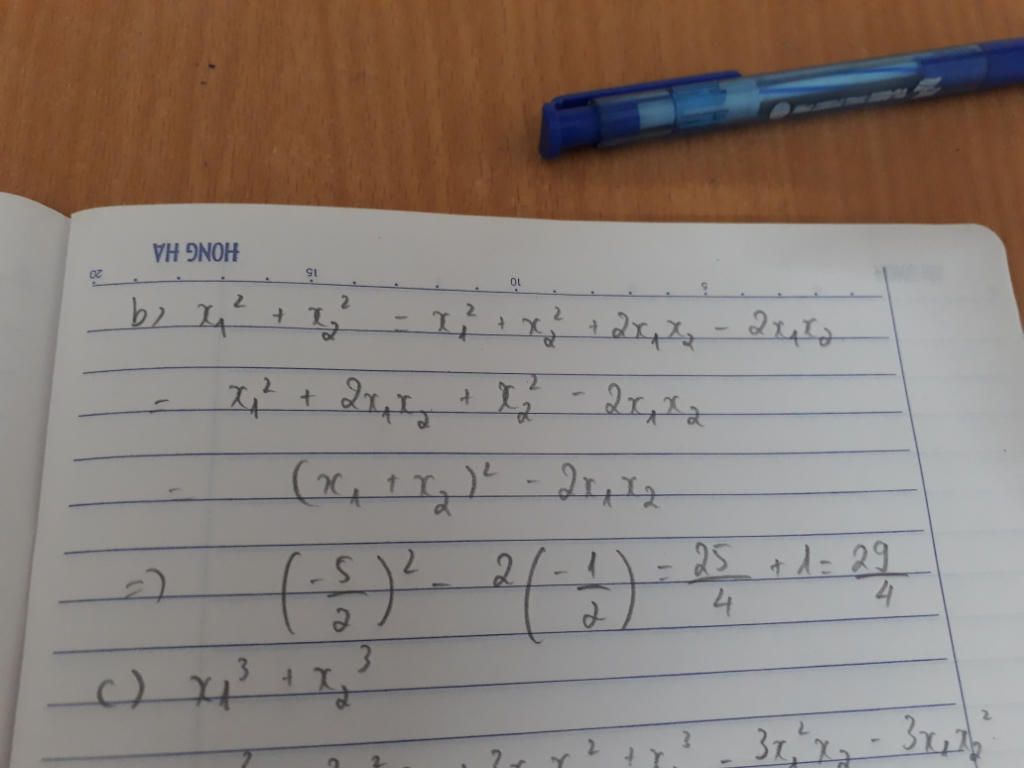 HONG HA
20 15 10 5
b) x₁² + x₂² = x₁² + x₂² + 2x₁x₂ - 2x₁x₂
= x₁² + 2x₁x₂ + x₂² - 2x₁x₂
= (x₁ + x₂)² - 2x₁x₂
=) (-5/2)² - 2(-1/2) = 25/4 + 1 = 29/4
c) x₁³ + x₂³
x₂² + x₂³ - 3x₁²x₂ - 3x₁x₂²